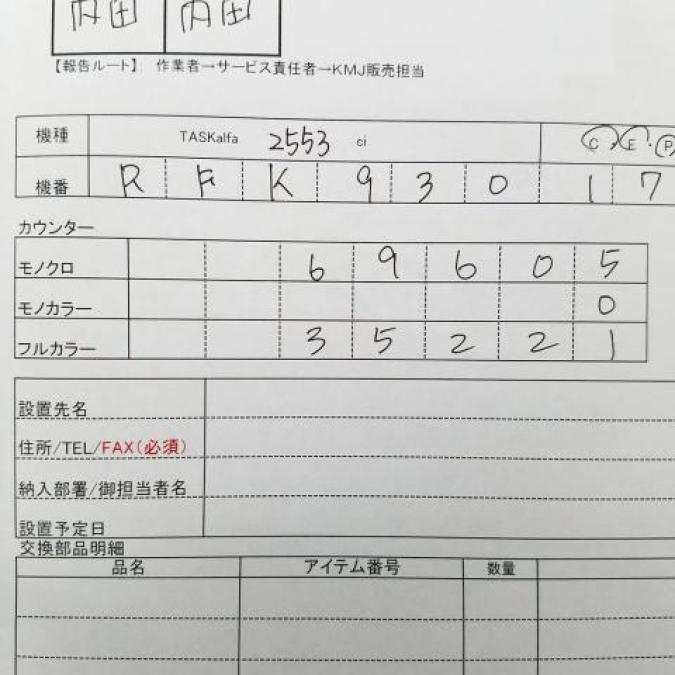 内田 内田
【報告ルート】: 作業者→サービス責任者→KMJ販売担当
機種 TASKalfa 2553 ci C・E・P
機番 R F K 9 3 0 1 7
カウンター
モノクロ 6 9 6 0 5
モノカラー 0
フルカラー 3 5 2 2 1
設置先名
住所/TEL/FAX(必須)
納入部署/御担当者名
設置予定日
交換部品明細
品名 アイテム番号 数量